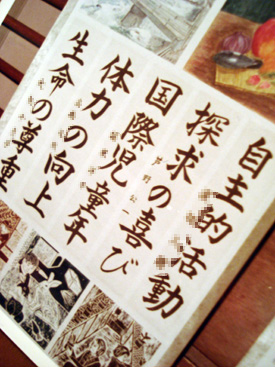 自主的活動
探求の喜び
国際児童年
体力の向上
生命の尊重